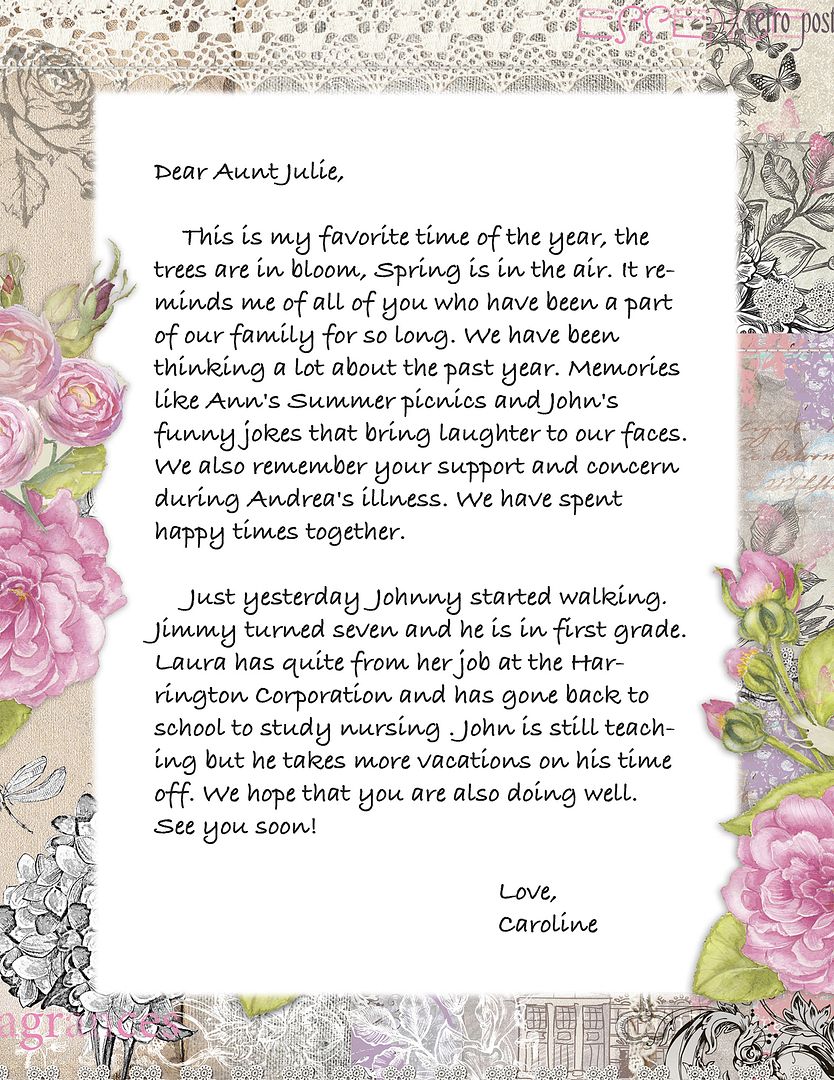 retro posi
Dear Aunt Julie,
This is my favorite time of the year, the
trees are in bloom, Spring is in the air. It re-
minds me of all of you who have been a part
of our family for so long. We have been
thinking a lot about the past year. Memories
like Ann's Summer picnics and John's
funny jokes that bring laughter to our faces.
We also remember your support and concern
during Andrea's illness. We have spent
happy times together.
Just yesterday Johnny started walking.
Jimmy turned seven and he is in first grade.
Laura has quite from her job at the Har-
rington Corporation and has gone back to
school to study nursing . John is still teach-
ing but he takes more vacations on his time
off. We hope that you are also doing well.
See you soon!
Love,
Caroline
agrances